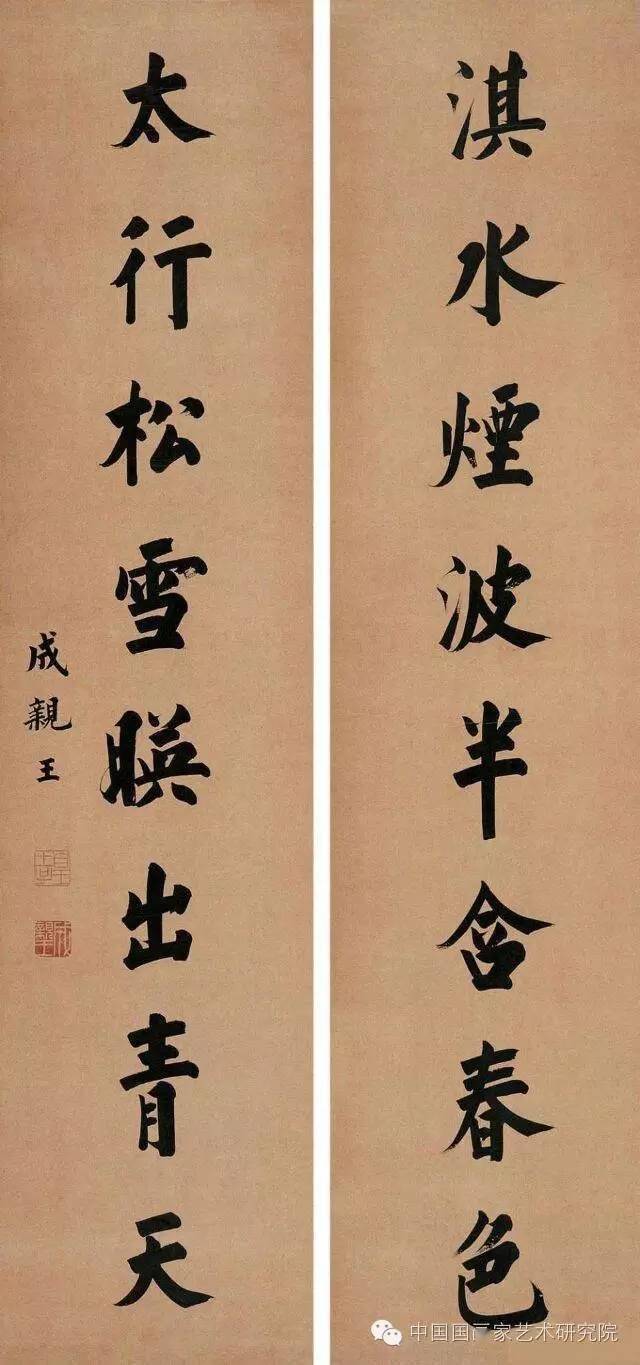 淇水煙波半含春色
太行松雪暎出青天
成親王
中国国画家艺术研究院